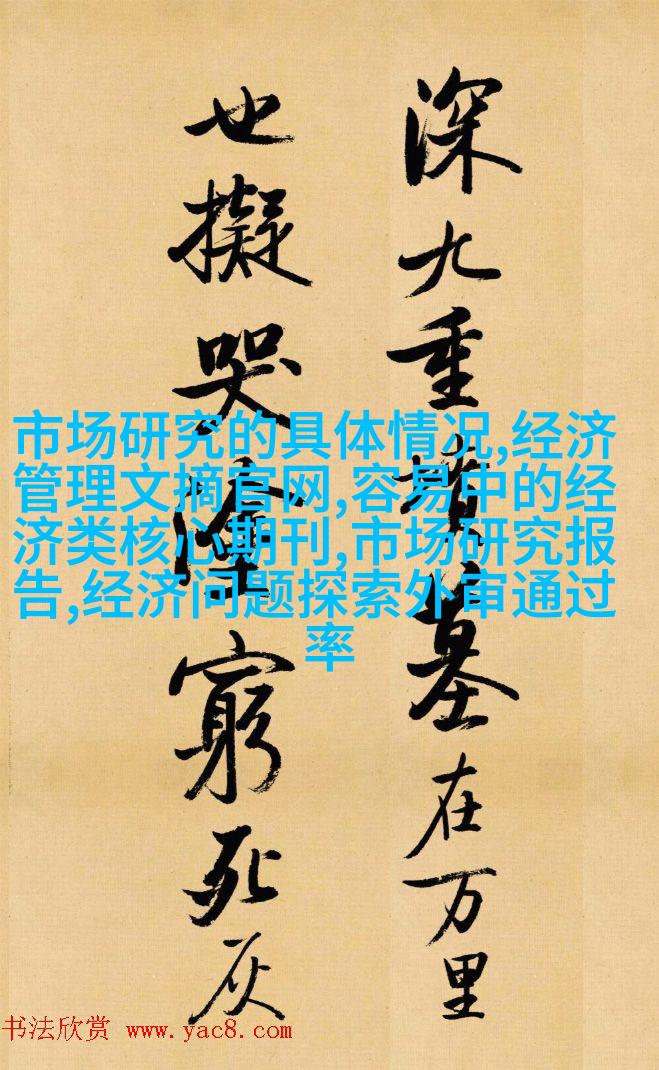 深九重墳墓在万里
也擬哭塗窮死灰
市场研究的具体情况,经济
管理文摘官网,容易中的经
济类核心期刊,市场研究报
告,经济问题探索外审通过
率
书法欣赏 www.yac8.com